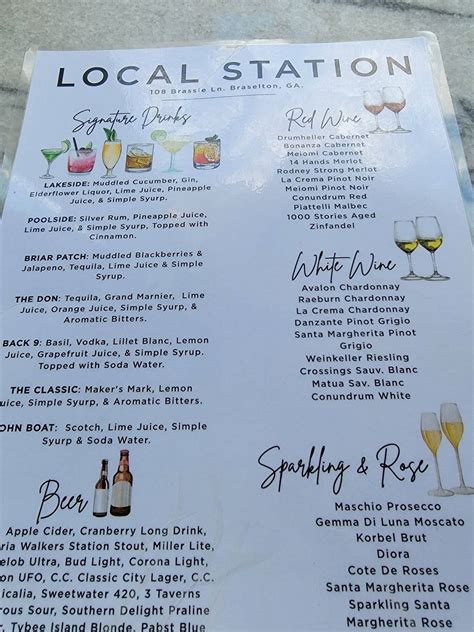 LOCAL STATION
108 Brassie Ln. Braselton, GA.
Signature Drinks
LAKESIDE: Muddled Cucumber, Gin,
Elderflower Liquor, Lime Juice, Pineapple
Juice, & Simple Syurp.
POOLSIDE: Silver Rum, Pineapple Juice,
Lime Juice, & Simple Syurp, Topped with
Cinnamon.
BRIAR PATCH: Muddled Blackberries &
Jalapeno, Tequila, Lime Juice & Simple
Syurp.
THE DON: Tequila, Grand Marnier, Lime
Juice, Orange Juice, Simple Syurp, &
Aromatic Bitters.
BACK 9: Basil, Vodka, Lillet Blanc, Lemon
Juice, Grapefruit Juice, & Simple Syurp.
Topped with Soda Water.
THE CLASSIC: Maker's Mark, Lemon
Juice, Simple Syurp, & Aromatic Bitters.
OHN BOAT: Scotch, Lime Juice, Simple
Syurp & Soda Water.
Beer
Apple Cider, Cranberry Long Drink,
ria Walkers Station Stout, Miller Lite,
elob Ultra, Bud Light, Corona Light,
on UFO, C.C. Classic City Lager, C.C.
icalia, Sweetwater 420, 3 Taverns
rous Sour, Southern Delight Praline
r, Tybee Island Blonde, Pabst Blue
Red Wine
Drumheller Cabernet
Bonanza Cabernet
Meiomi Cabernet
14 Hands Merlot
Rodney Strong Merlot
La Crema Pinot Noir
Meiomi Pinot Noir
Conundrum Red
Piattelli Malbec
1000 Stories Aged
Zinfandel
White Wine
Avalon Chardonnay
Raeburn Chardonnay
La Crema Chardonnay
Danzante Pinot Grigio
Santa Margherita Pinot
Grigio
Weinkeller Riesling
Crossings Sauv. Blanc
Matua Sav. Blanc
Conundrum White
Sparkling & Rose
Maschio Prosecco
Gemma Di Luna Moscato
Korbel Brut
Diora
Cote De Roses
Santa Margherita Rose
Sparkling Santa
Margherita Rose